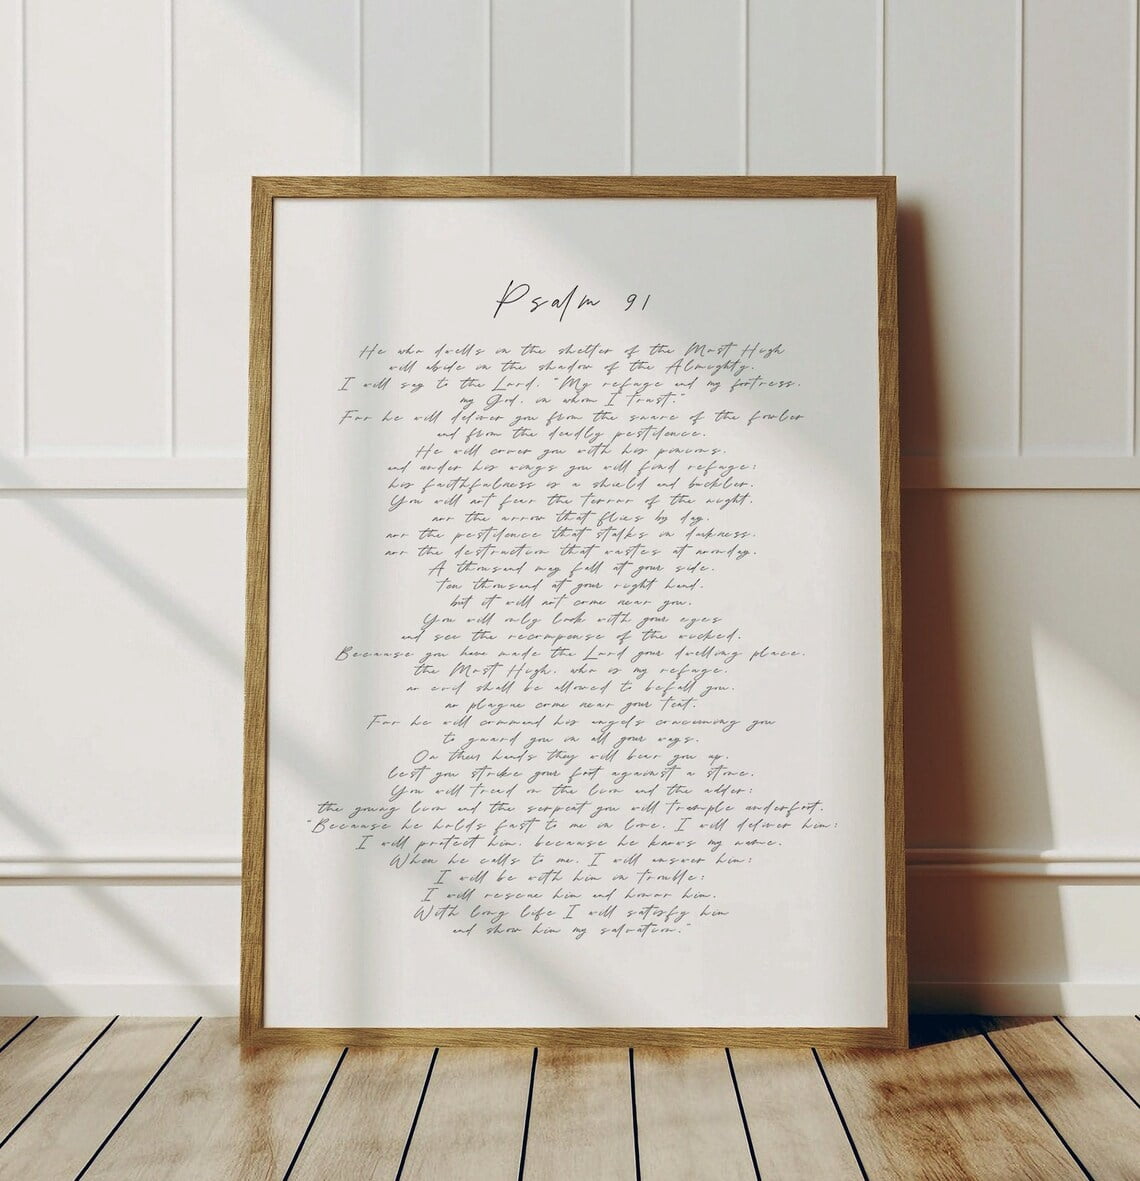 Psalm 91
He who dwells in the shelter of the Most High
will abide in the shadow of the Almighty.
I will say to the Lord, "My refuge and my fortress,
my God, in whom I trust."
For he will deliver you from the snare of the fowler
and from the deadly pestilence.
He will cover you with his pinions,
and under his wings you will find refuge;
his faithfulness is a shield and buckler.
You will not fear the terror of the night,
nor the arrow that flies by day,
nor the pestilence that stalks in darkness,
nor the destruction that wastes at noonday.
A thousand may fall at your side,
ten thousand at your right hand,
but it will not come near you.
You will only look with your eyes
and see the recompense of the wicked.
Because you have made the Lord your dwelling place,
the Most High, who is my refuge,
no evil shall be allowed to befall you,
no plague come near your tent.
For he will command his angels concerning you
to guard you in all your ways.
On their hands they will bear you up,
lest you strike your foot against a stone.
You will tread on the lion and the adder;
the young lion and the serpent you will trample underfoot.
"Because he holds fast to me in love, I will deliver him;
I will protect him, because he knows my name.
When he calls to me, I will answer him;
I will be with him in trouble;
I will rescue him and honor him.
With long life I will satisfy him
and show him my salvation."